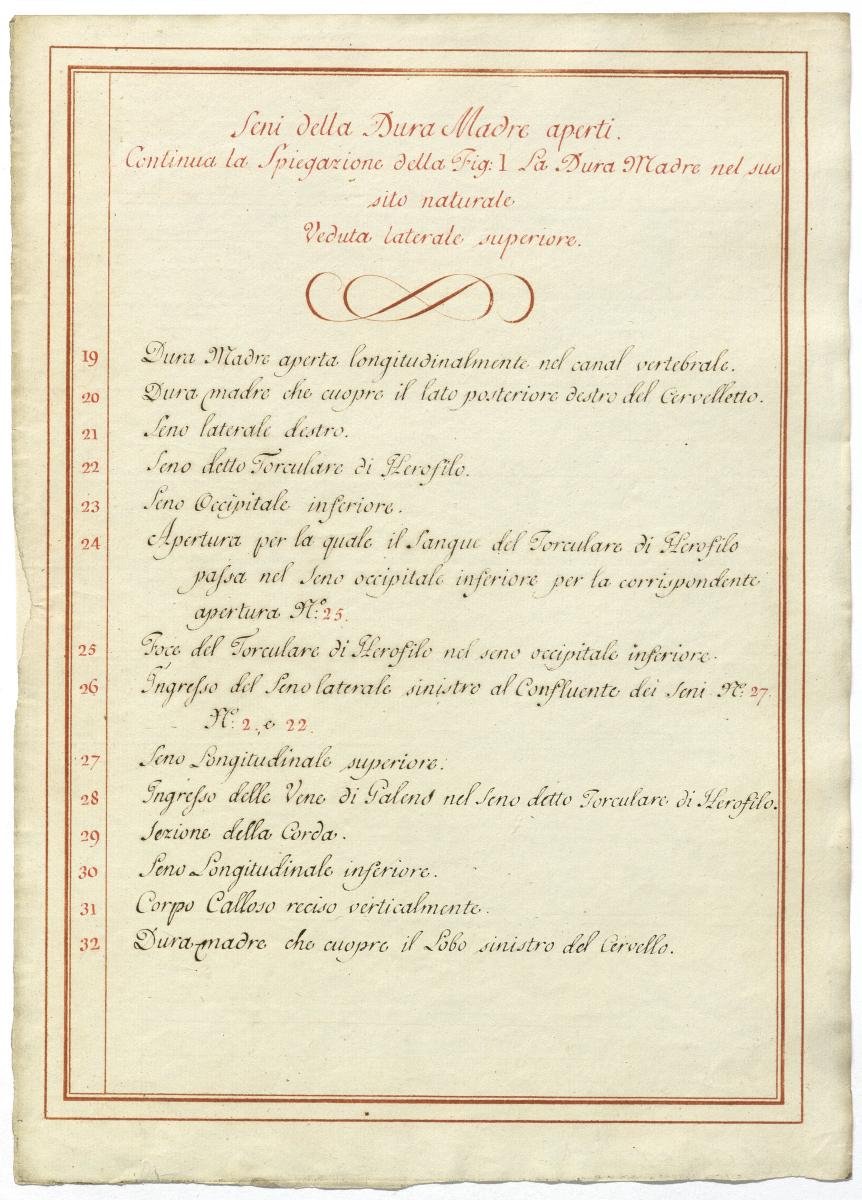 Seni della Dura Madre aperti.
Continua la Spiegazione della Fig: I La Dura Madre nel suo
sito naturale
Veduta laterale superiore.
19 Dura Madre aperta longitudinalmente nel canal vertebrale.
20 Dura madre che cuopre il lato posteriore destro del Cervelletto.
21 Seno laterale destro.
22 Seno detto Torculare di Herofilo.
23 Seno Occipitale inferiore.
24 Apertura per la quale il Sangue del Torculare di Herofilo
passa nel Seno occipitale inferiore per la corrispondente
apertura N.º 25.
25 Foce del Torculare di Herofilo nel seno occipitale inferiore.
26 Ingresso del Seno laterale sinistro al Confluente dei Seni N.º 27.
N.º 2. e 22.
27 Seno Longitudinale superiore.
28 Ingresso delle Vene di Galeno nel Seno detto Torculare di Herofilo.
29 Sezione della Corda.
30 Seno Longitudinale inferiore.
31 Corpo Calloso reciso verticalmente.
32 Dura madre che cuopre il Lobo sinistro del Cervello.